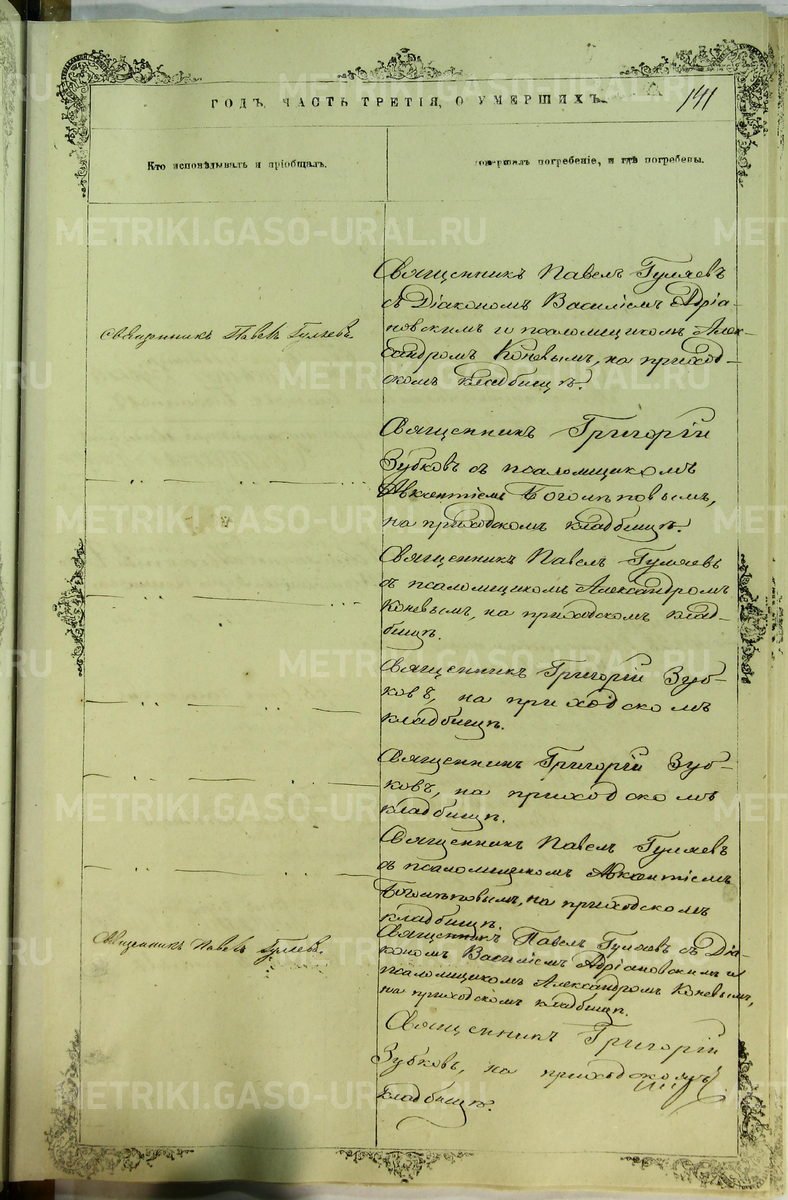 ГОДЪ, ЧАСТЬ ТРЕТІЯ, О УМЕРШИХЪ.
141
Кто исповѣдывалъ и пріобщалъ.
погребеніе, и гдѣ погребены.
METRIKI.GASO-URAL.RU
Священникъ Павелъ Гуляевъ.
Священникъ Павелъ Гуляевъ
съ Діакономъ Василіемъ Адріа-
новскимъ и псаломщикомъ Алек-
сандромъ Коневымъ, на приход-
скомъ кладбищѣ.
Священникъ Григорій
Зубковъ съ псаломщикомъ
Авксентіемъ Боголѣповымъ,
на приходскомъ кладбищѣ.
Священникъ Павелъ Гуляевъ
съ псаломщикомъ Александромъ
Коневымъ, на приходскомъ клад-
бищѣ.
Священникъ Григорій Зуб-
ковъ, на приходскомъ
кладбищѣ.
Священникъ Григорій Зуб-
ковъ, на приходскомъ
кладбищѣ.
Священникъ Павелъ Гуляевъ
съ псаломщикомъ Авксентіемъ
Боголѣповымъ, на приходскомъ
кладбищѣ.
Священникъ Павелъ Гуляевъ.
Священникъ Павелъ Гуляевъ съ Діа-
кономъ Василіемъ Адріановскимъ и
псаломщикомъ Александромъ Коневымъ,
на приходскомъ кладбищѣ.
Священникъ Григорій
Зубковъ, на приходскомъ
кладбищѣ.